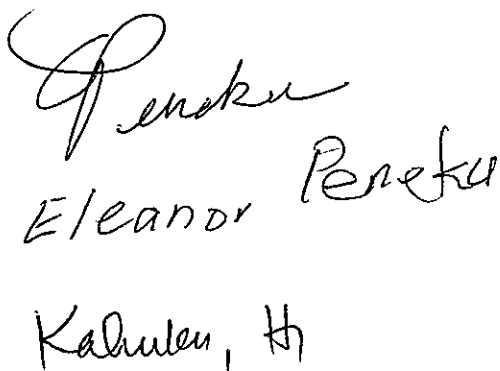 Peneku
Eleanor Peneku
Kahuku, HI